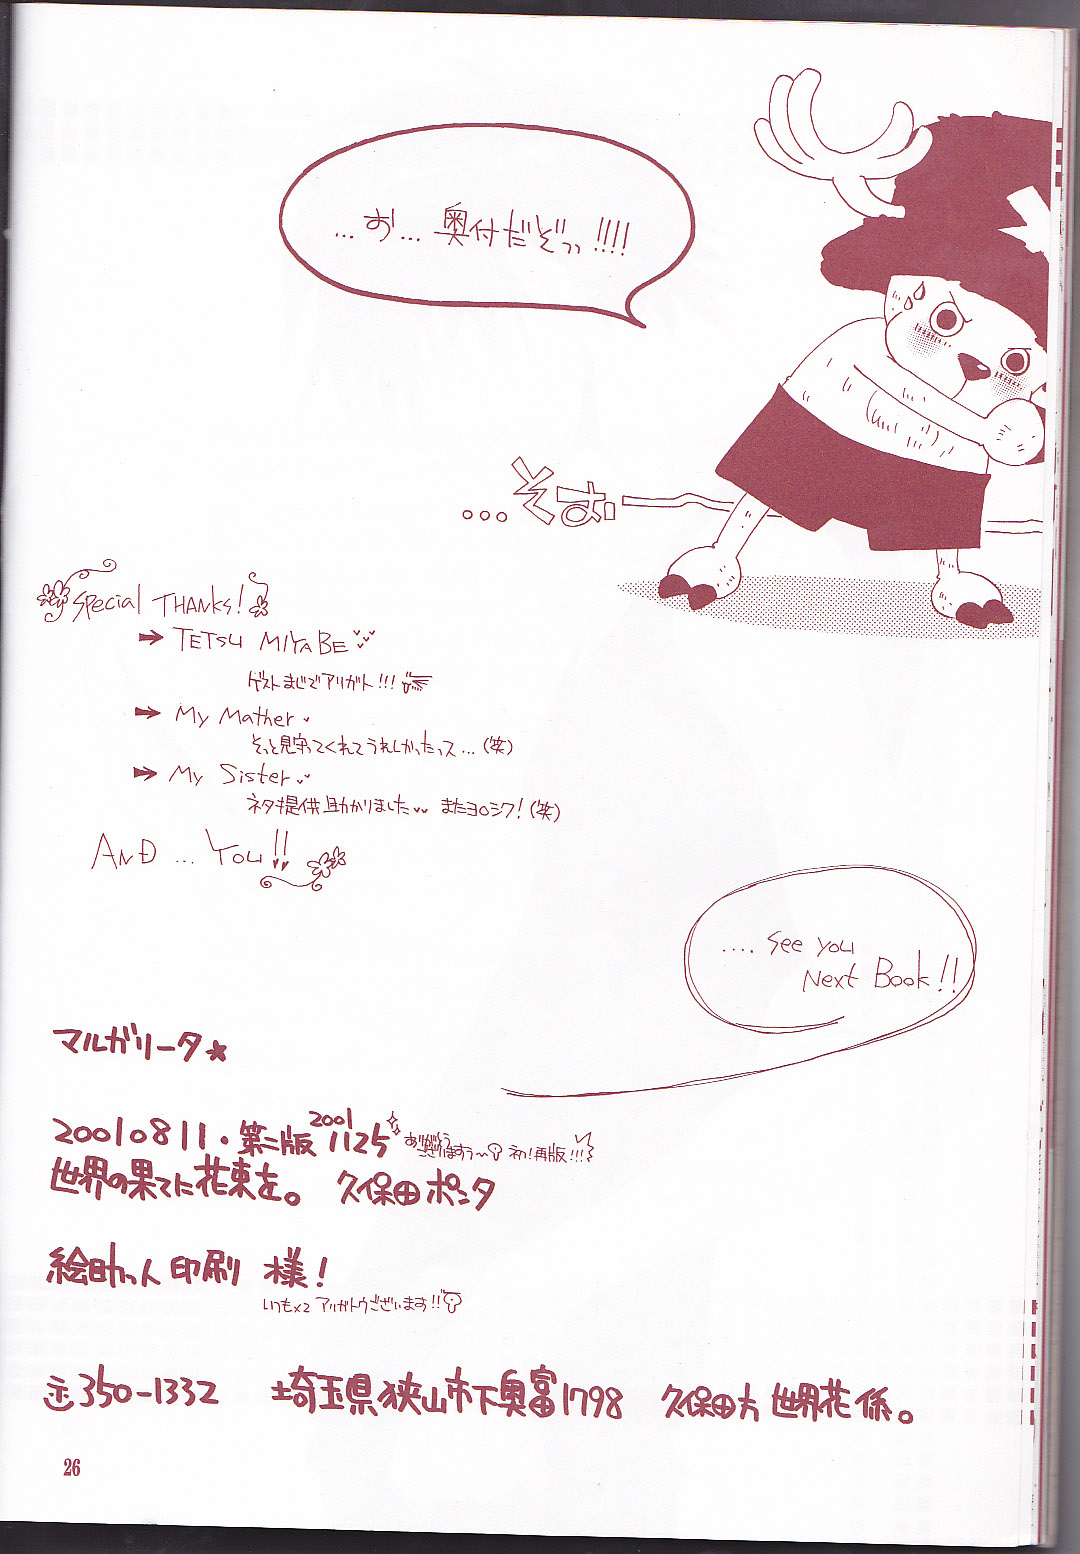 …お…奥付だぞっっ!!!!
...そぉ
Special THANKS!
➡ TETSU MIYABE
ゲストまじでアリガト!!!
➡ My Mather
そっと見守ってくれてうれしかったっス…(笑)
➡ My Sister
ネタ提供助かりました またヨロシク!(笑)
AND ... You!!
.... See you
Next Book!!
マルガリータ★
20010811・第二版 2001 1125 ありがとうございますぅ〜 初!再版!!!
世界の果てに花束を。 久保田ポンタ
絵助っ人印刷 様!
いつも×2 アリガトウございます!!
〒350-1332 埼玉県狭山市下奥富1798 久保田方 世界花係。
26